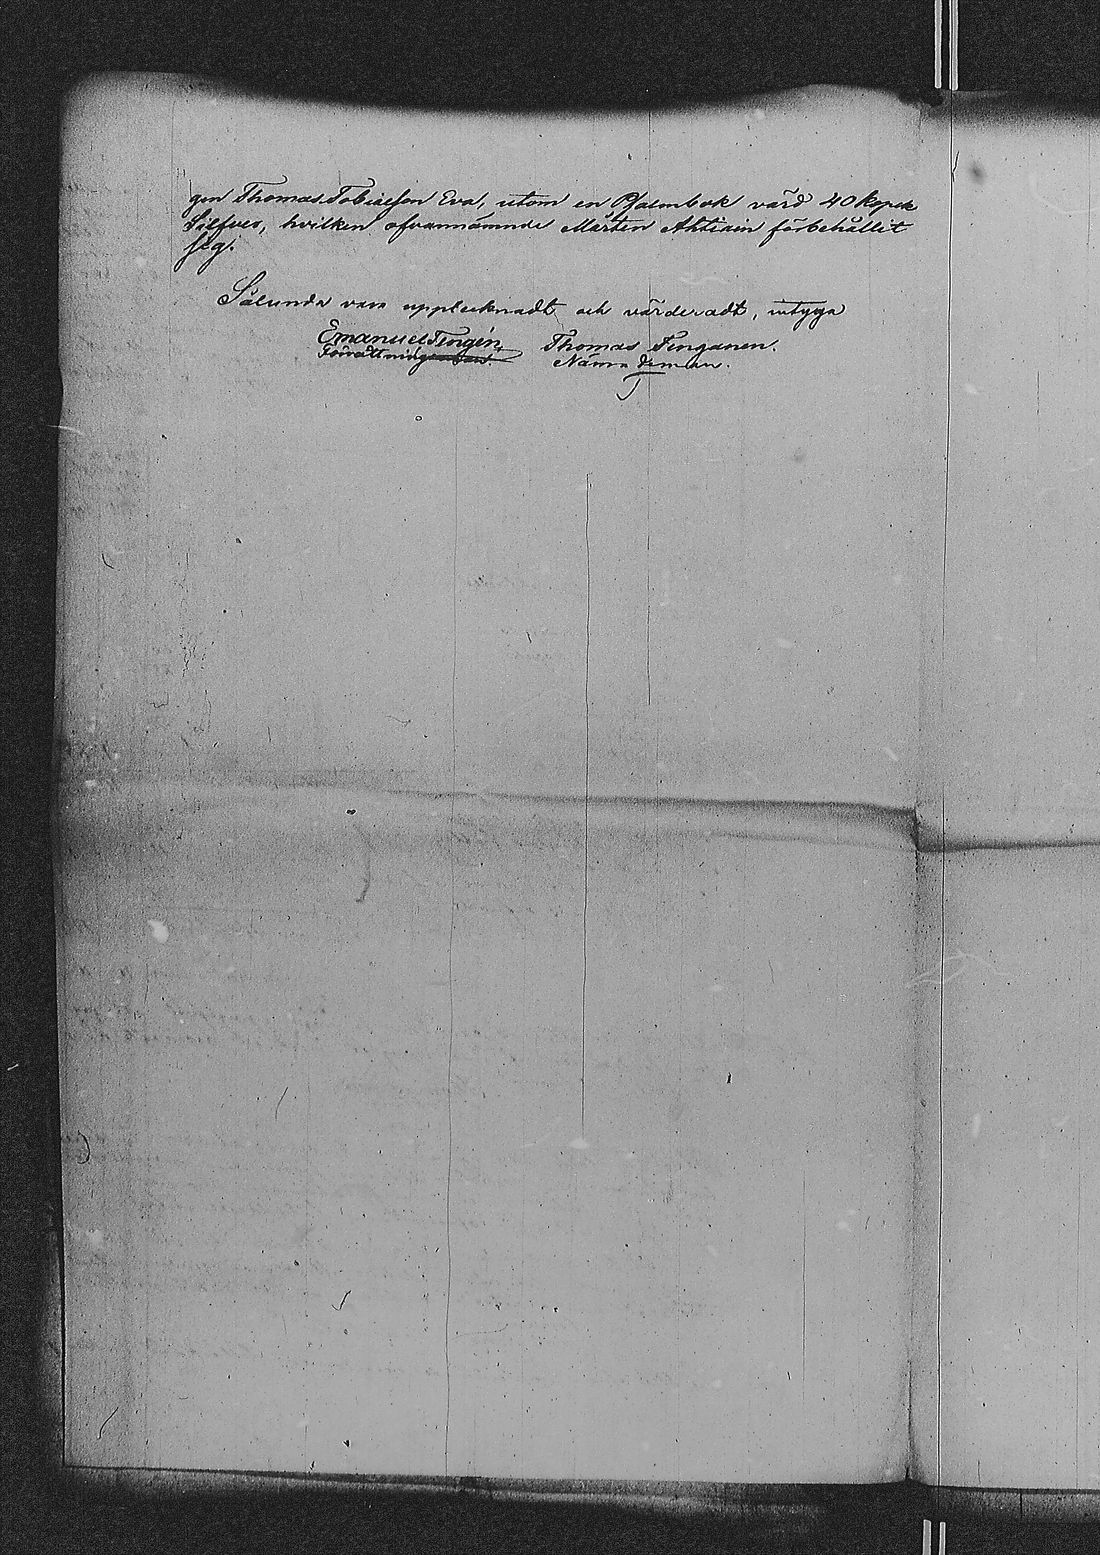 gen Thomas Tobiaesson Eva, utom en Psalmbok värd 40 kopek
Silfver, hvilken ofvannämnde Mårten Ahtiain förbehållit
sig.
Sålunda vara upptecknadt och värderadt, intyga
Emanuel Tengén, Thomas Tenganen.
Förrättningsman. Nämndeman.